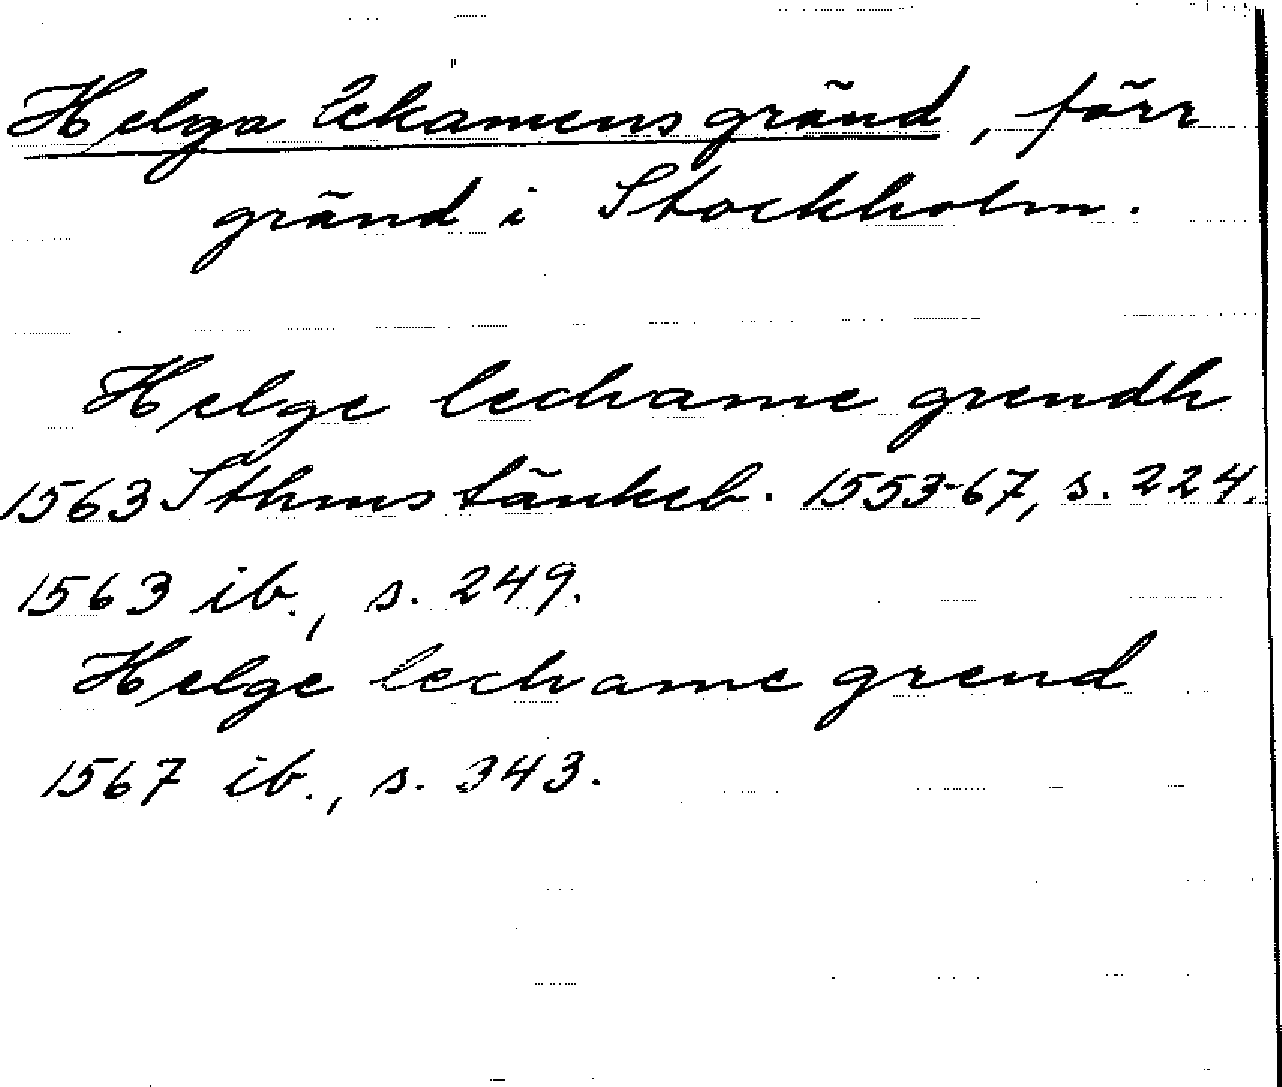 Helga lekamens gränd, förr
gränd i Stockholm.
Helge lechame grendh
1563 Sthms tänkeb. 1553-67, s. 224.
1563 ib., s. 249.
Helge lechame grend
1567 ib., s. 343.